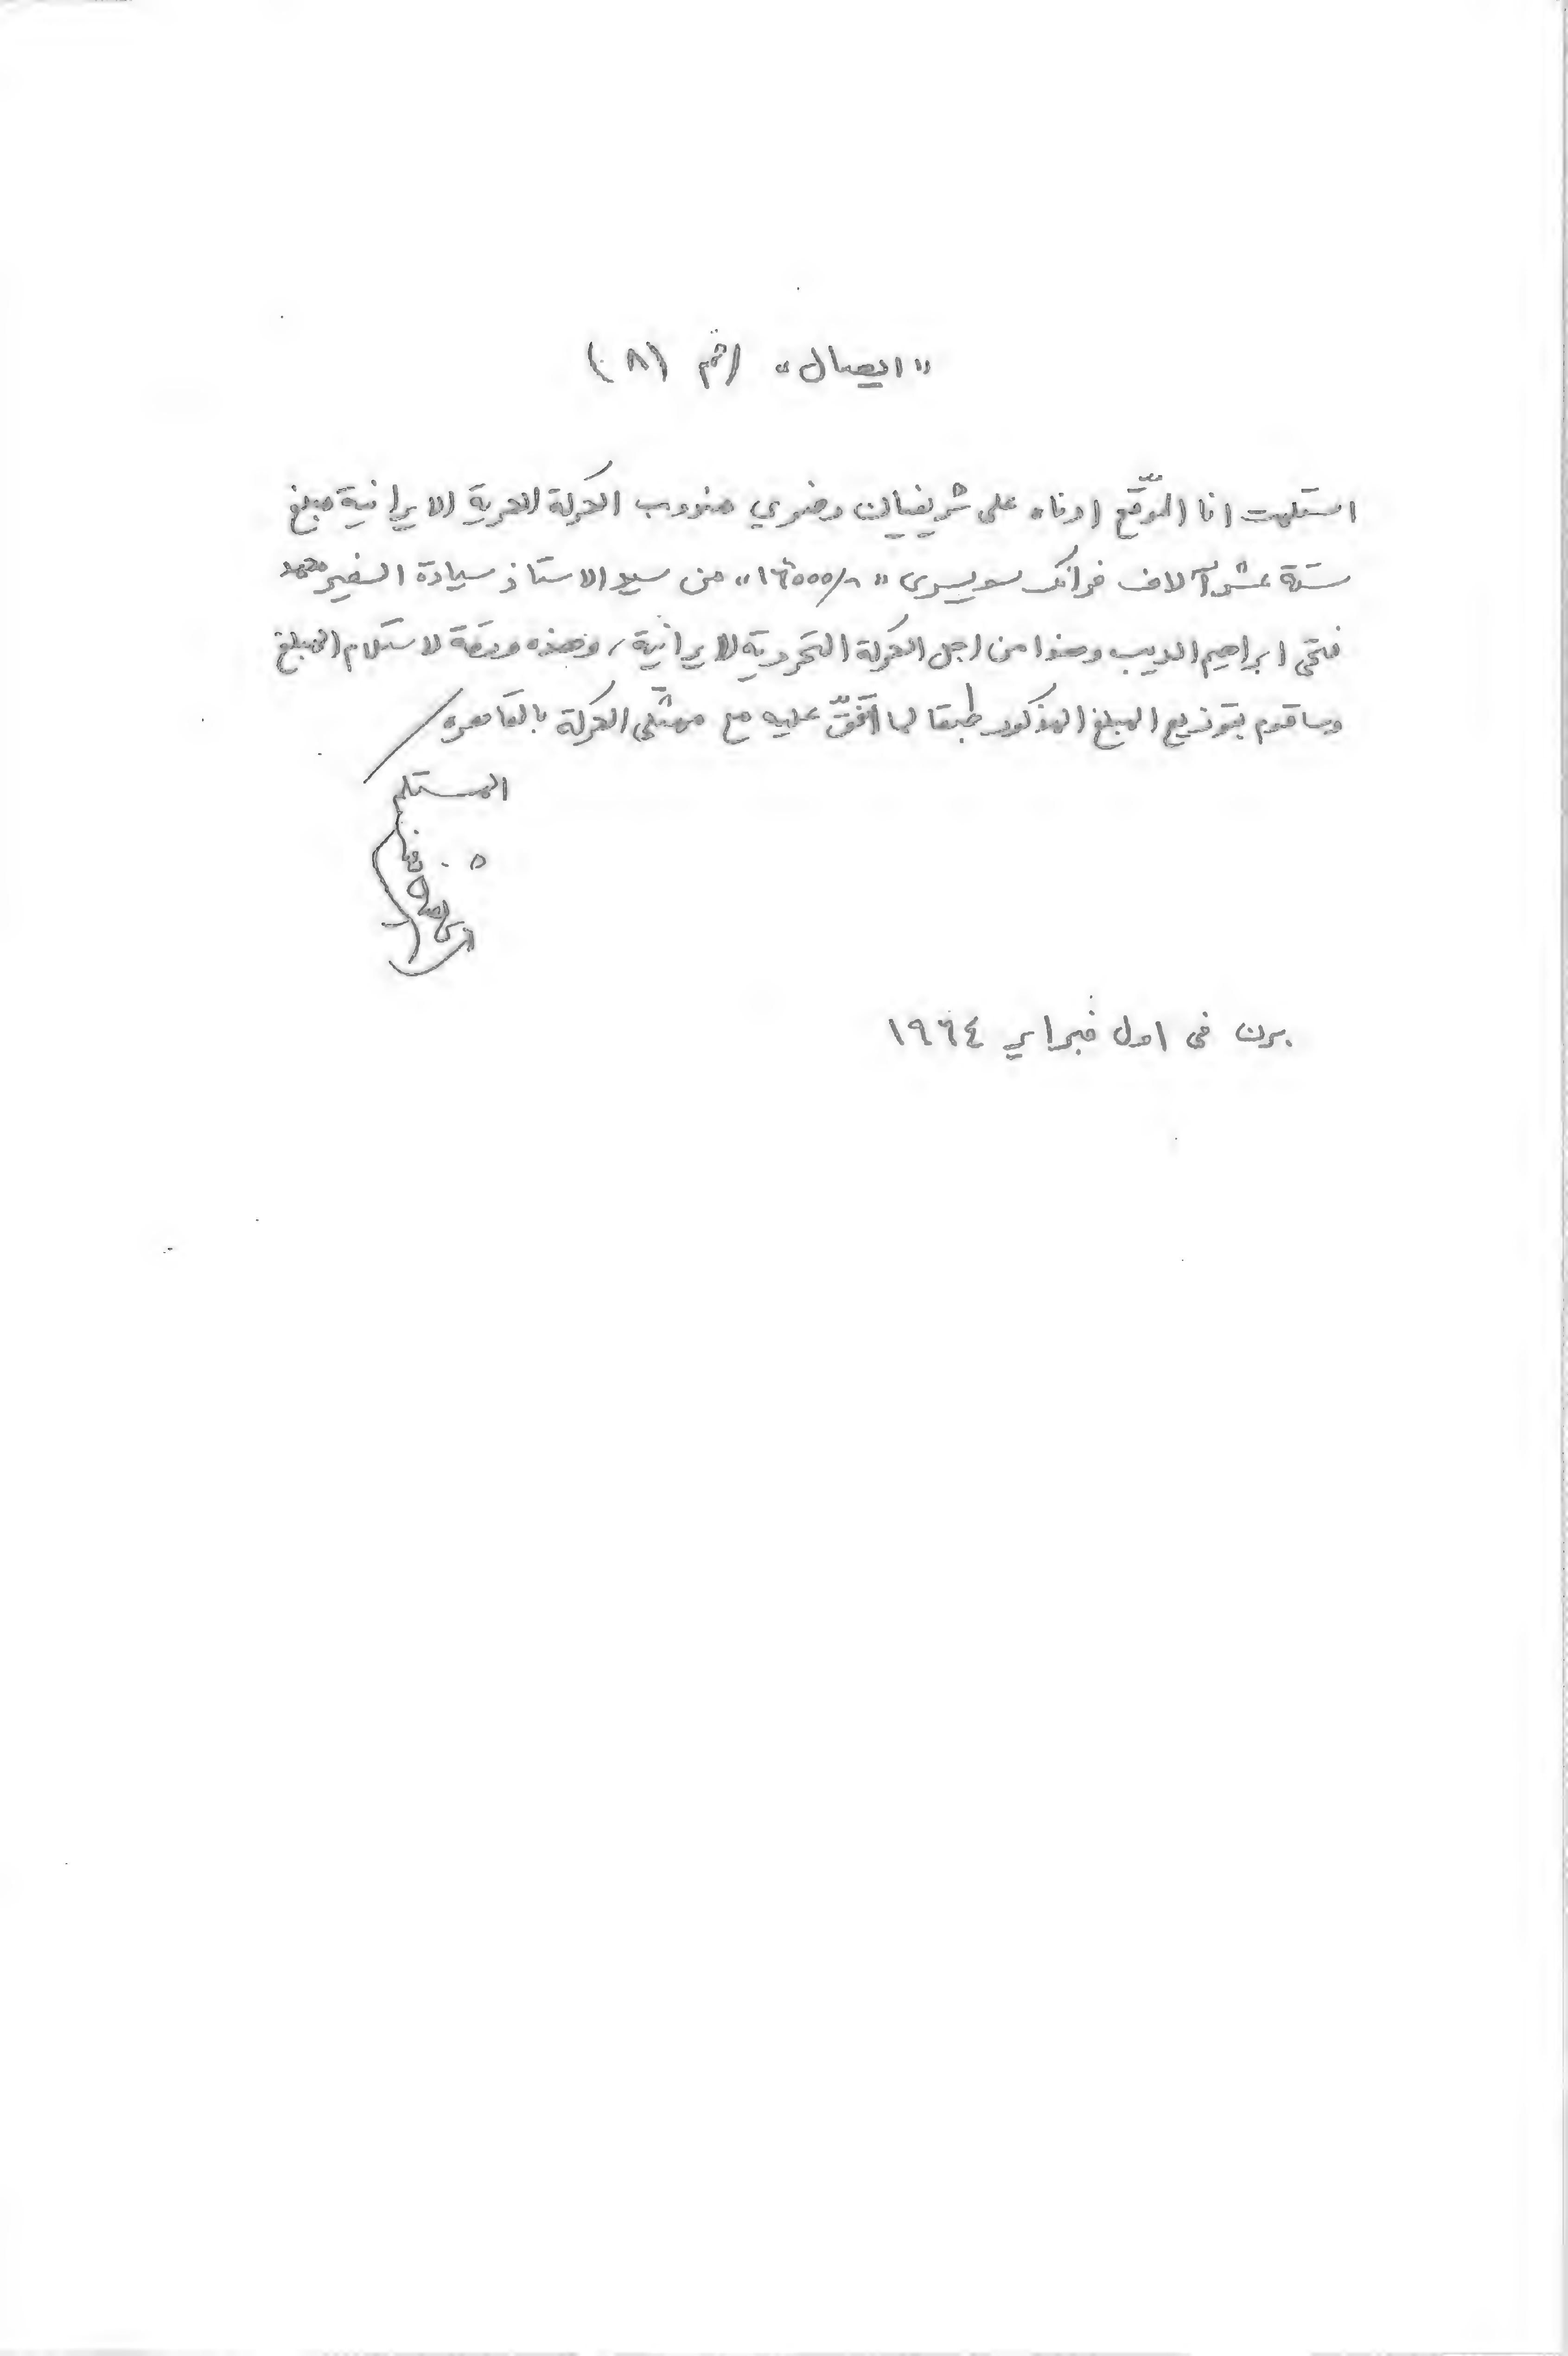 «ايصال» رقم (٨)
استلمت انا الموقّع ادناه على شريفيان رضوي مندوب الحركة الحرية الايرانية مبلغ
ستة عشر آلاف فرانك سويسرى «١٦٠٠٠/-» من سيد الاستاذ سيادة السفير محمد
فتحى ابراهيم الديب وهذا من اجل الحركة التحررية الايرانية، وهذه ورقة لاستلام المبلغ
وساقوم بتوزيع المبلغ المذكور طبقا لما اتّفق عليه مع ممثّلى الحركة بالقاهره
المستلم
برن فى اول فبراير ١٩٦٤